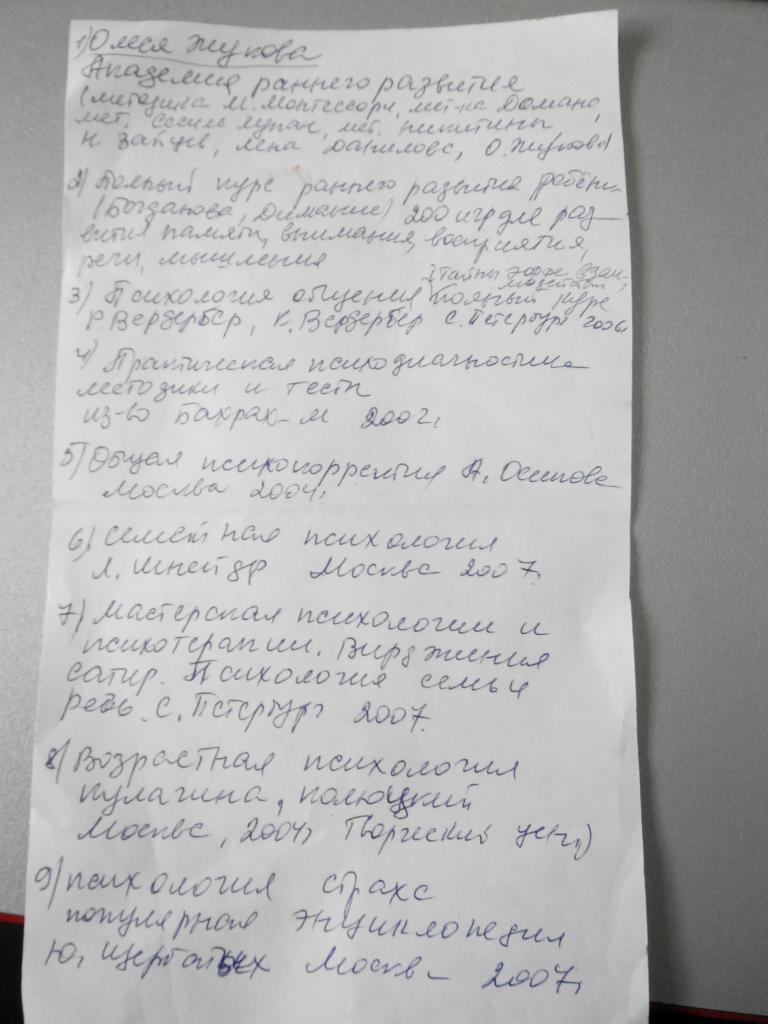 1) Олеся Жукова
Академия раннего развития
(методика М. Монтессори, мет-ка Домана,
мет. Сесиль Лупан, мет. Никитины
Н. Зайцев, Лена Данилова, О. Жукова)
2) Полный курс раннего развития ребёнка
(Богданова, Диманис) 200 игр для раз-
вития памяти, внимания, восприятия,
речи, мышления
Тайны эффе взаи-
3) Психология общения Полный курс
Р. Вердербер, К. Вердербер С. Петербург 2006г
4) Практическая психодиагностика
методики и тесты
из-во Бахрах-М 2002г,
5) Общая психокоррекция А. Осипова
Москва 2004г.
6) Семейная психология
Л. Шнейдер Москва 2007.
7) Мастерская психологии и
психотерапии. Вирджиния
Сатир. Психология семьи
С. Петербург 2007.
8) Возрастная психология
Кулагина, Колюцкий
Москва, 2004г Творческий центр)
9) Психология страха
популярная энциклопедия
Ю. Щербатых Москва 2007г